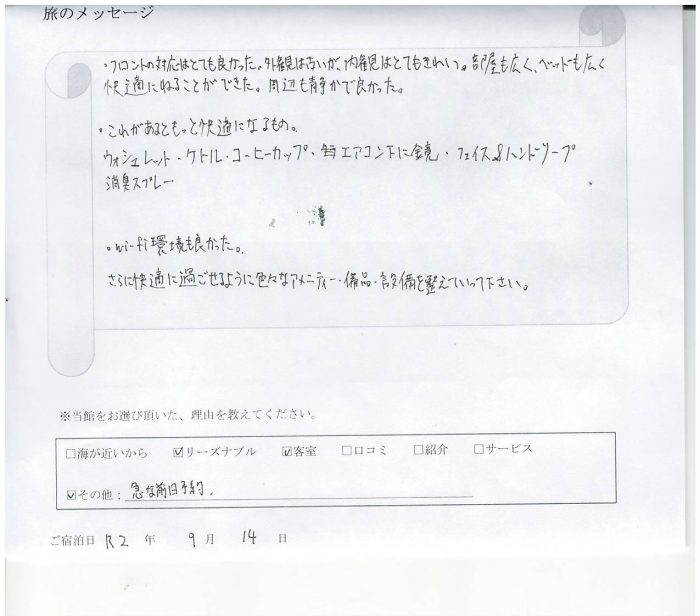 旅のメッセージ
・フロントの対応はとても良かった。外観は古いが、内観はとてもきれい。部屋も広く、ベッドも広く
快適にねることができた。周辺も静かで良かった。
・これがあるともっと快適になるもの。
ウォシュレット・ケトル・コーヒーカップ・エアコン下に鏡・フェイス&ハンドソープ
消臭スプレー
・wi-fi環境も良かった。
さらに快適に過ごせるように色々なアメニティー・備品・設備を整えていって下さい。
※当館をお選び頂いた、理由を教えてください。
□海が近いから ☑リーズナブル ☑客室 □口コミ □紹介 □サービス
☑その他：急な前日予約。
ご宿泊日 R2 年 9 月 14 日